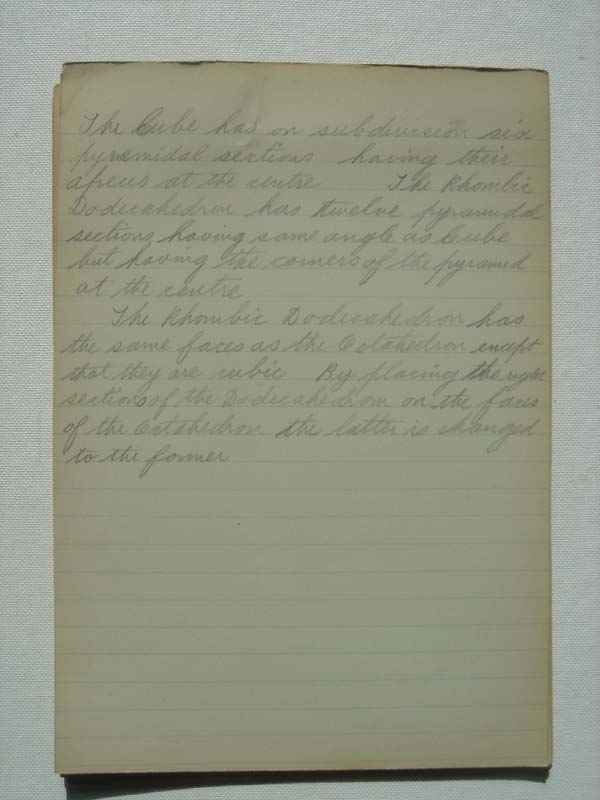 The Cube has on subdivision six
pyramidal sections having their
apices at the centre The Rhombic
Dodecahedron has twelve pyramidal
sections having same angle as Cube
but having the corners of the pyramid
at the centre
The Rhombic Dodecahedron has
the same faces as the Octahedron except
that they are cubic By placing the
sections of the Dodecahedron on the faces
of the Octahedron the latter is changed
to the former